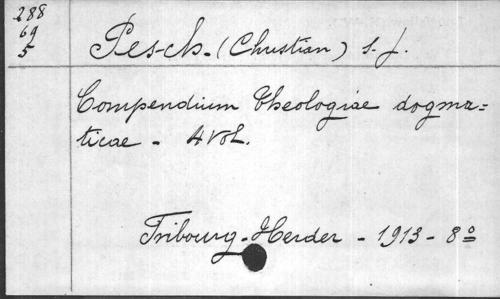 288
69
5
Pesch - (Christian) S. J.
Compendium Theologiae dogma=
ticae - 4 vol.
Fribourg - Herder - 1913 - 8º